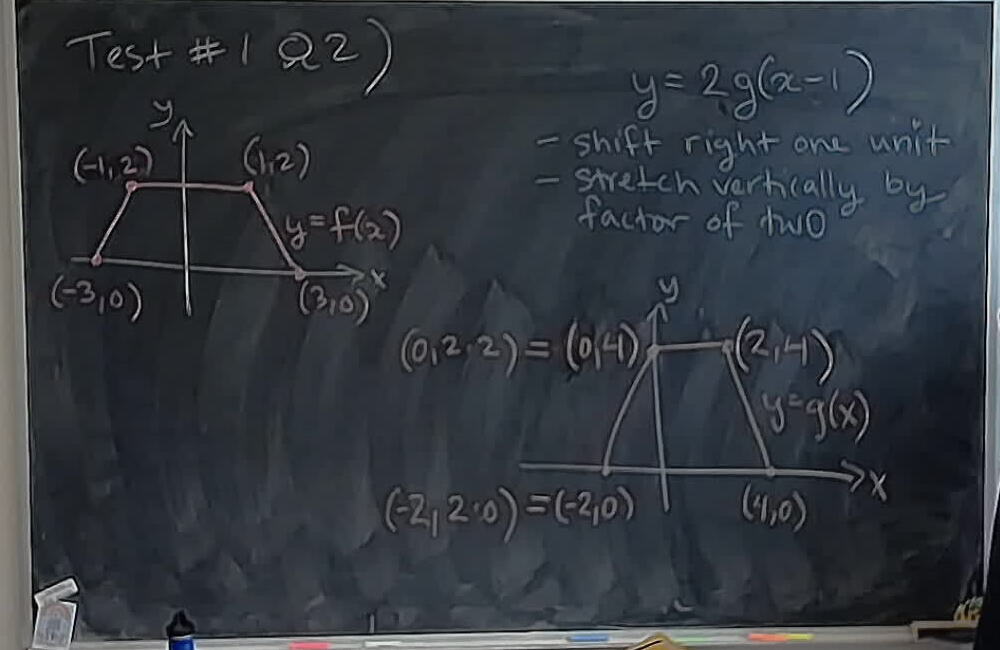 Test #1 Q2)
y
(-1,2) (1,2)
y=f(x)
x
(-3,0) (3,0)
y=2g(x-1)
- shift right one unit
- stretch vertically by
factor of two
y
(0,2·2)=(0,4) (2,4)
y=g(x)
x
(-2,2·0)=(-2,0) (4,0)